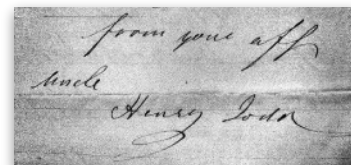 from your aff
Uncle
Henry Todd